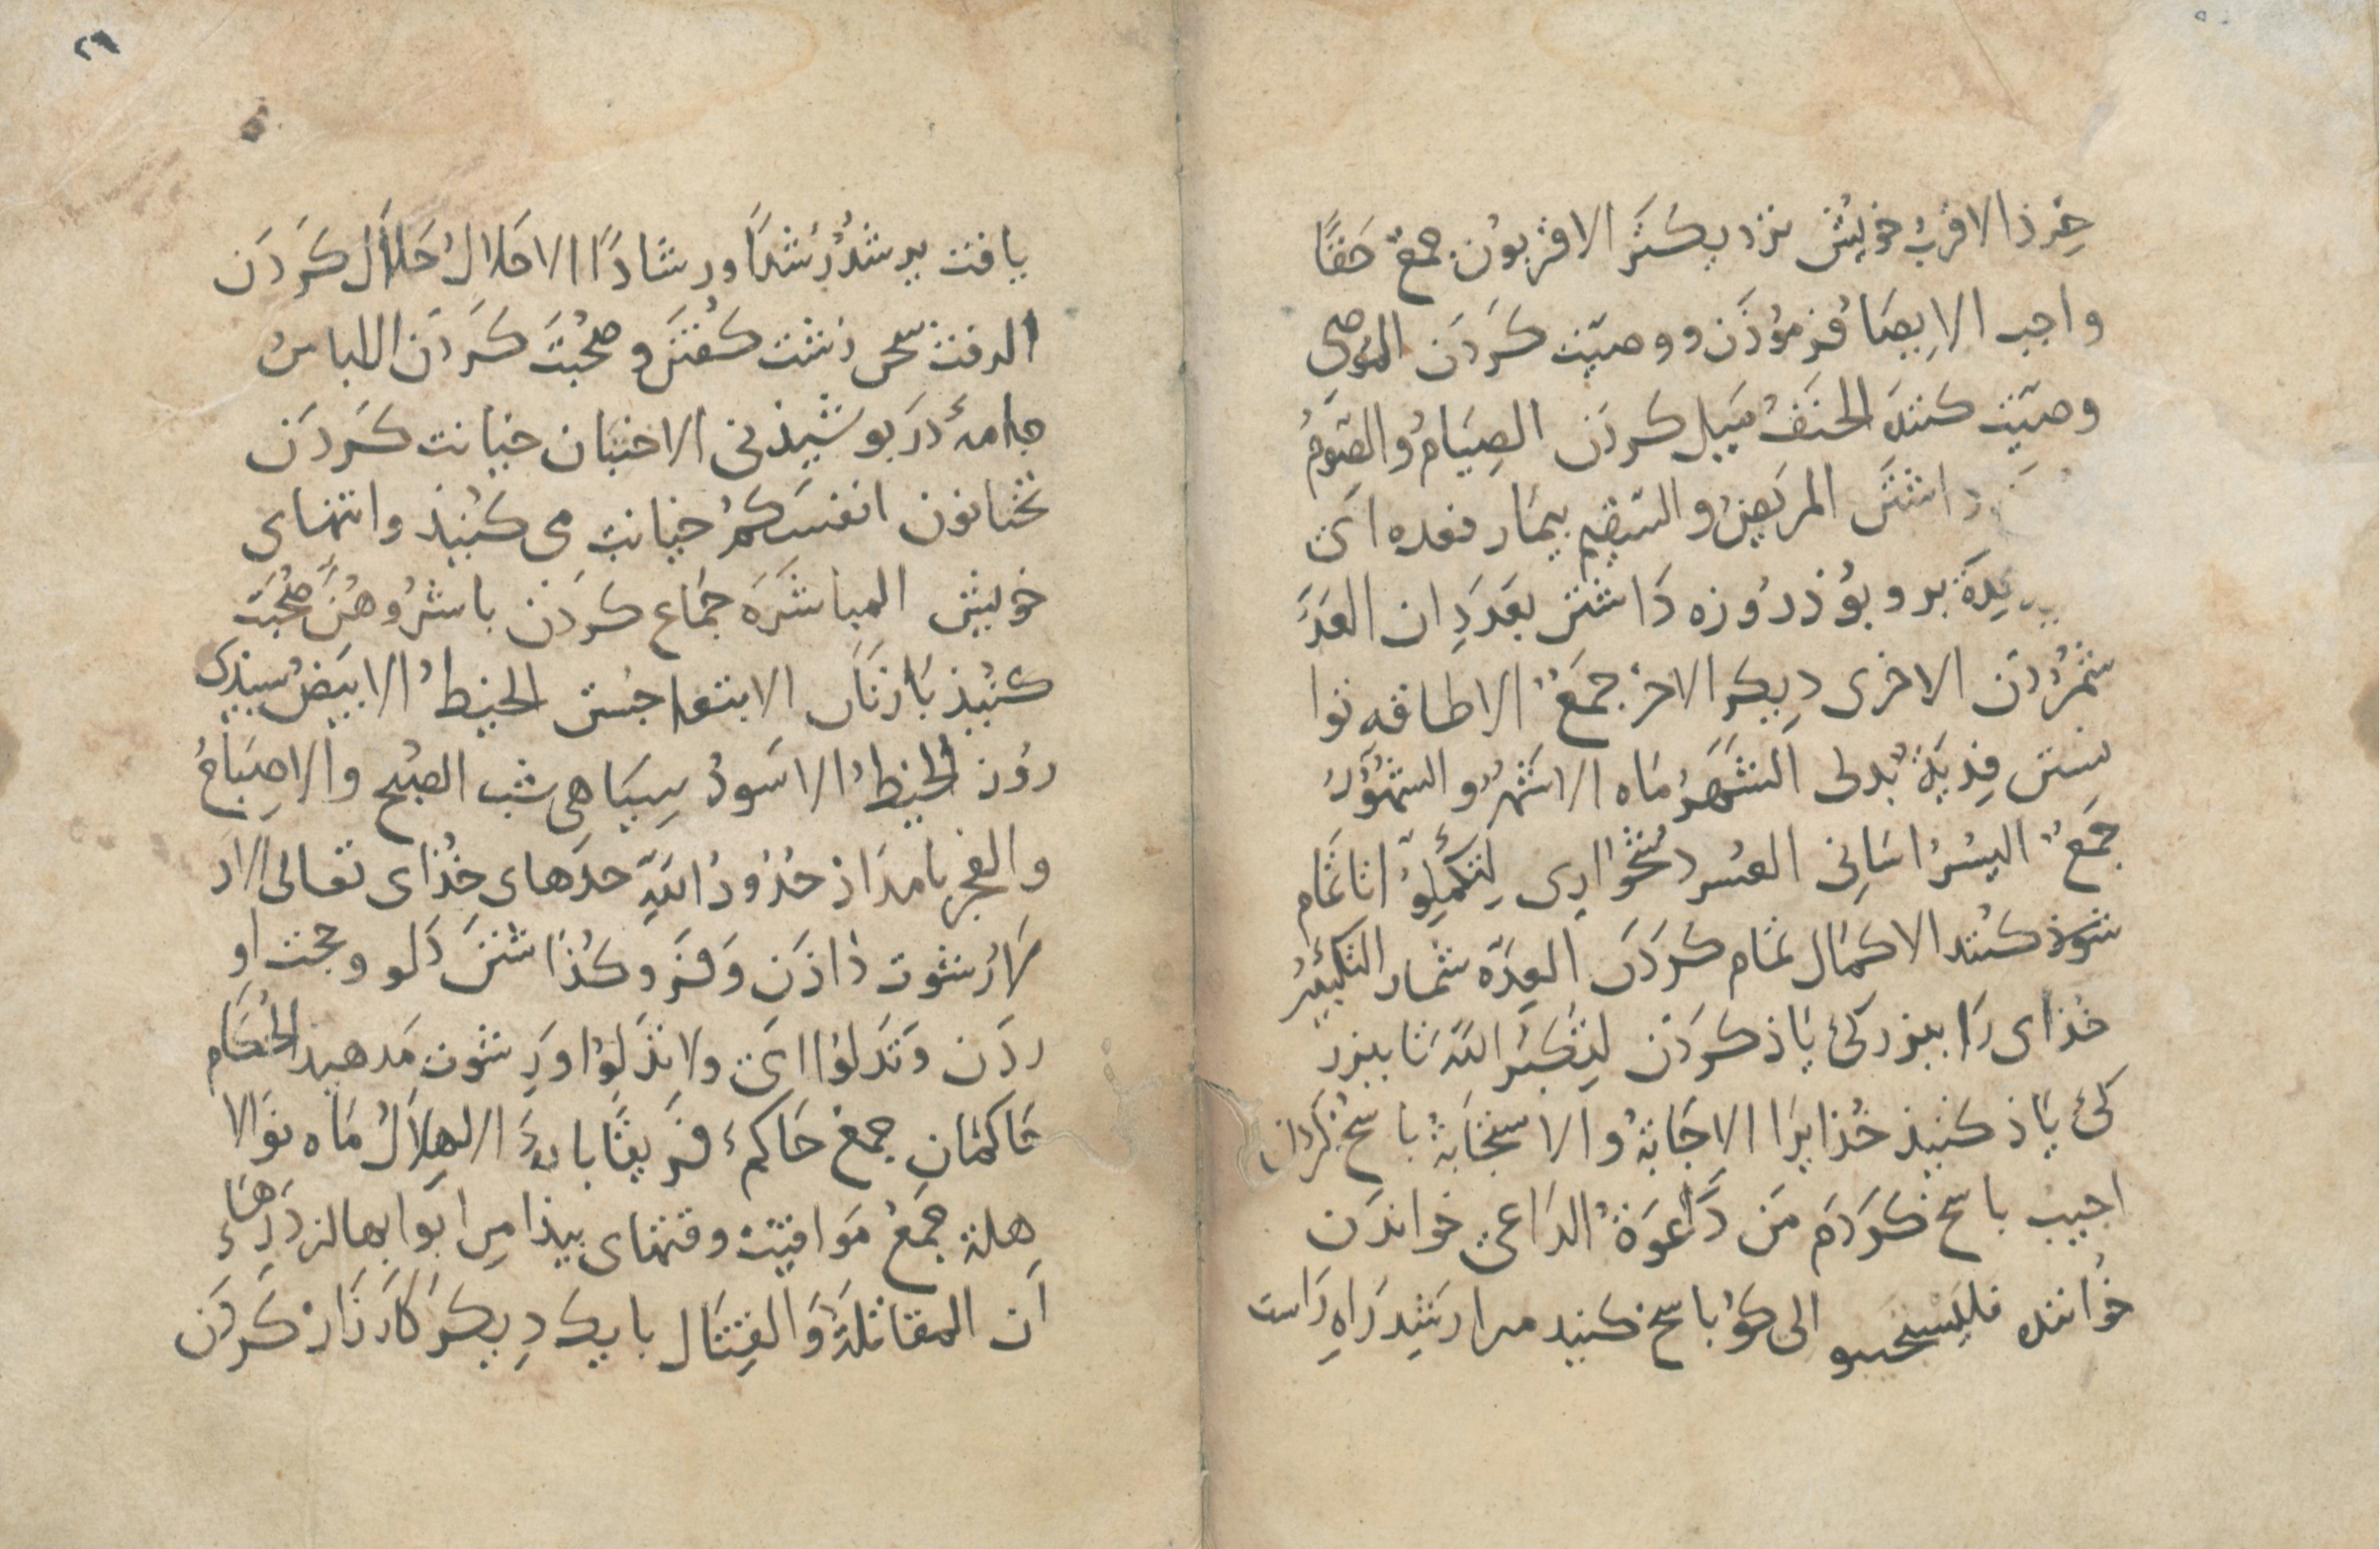 خرذ الاقربُ خویش نزدیکتَر الاقربُون جمعٌ حَقًّا
واجب الاِیصَا فرمُوذَن و وصیّت کَردَن الموصِی
وصیّت کنندَ الجَنَفُ مَیل کردَن الصِیَامُ والصَّومُ
داشتَن المریضُ والسّقیم بیمَار فعده ایَ
عِدَة بروبُوذ رُوزه دَاشتن بعَدَدِ ان العَدَّ
شمُردَن الاخری دِیکر الاخرُ جمَعٌ الاطاقه توا
نستن فِدیَةٌ بَدلی الشَهرُ مَاه الاشهُرُ والشهُوُرُ
جَمَعٌ الیسُرُ اسَانِی العسر دشخوَارِی لِتُکمِلوُا تا تمَام
شوذ کنند الاکمَال تمَام کَردَن العِدَّه شمار التکبیرُ
خذای رَا ببزرکیُ یَاذ کردَن لِتُکَبّرُ اللهَ تا ببزر
کیُ یَاذ کنیذ خُذایرَا الاِجَابَةُ والاستجَابَةُ باسخ کردن
اجیب باسخ کردَم مَن دَعوَةُ الدَاعیَ خواندَن
خوُاننده فلیَستجیبو الی کوُ باسخ کنید مرا رَشِد رَاهِ رَاست
٢٩
یافت یرشدُ رُشدًا ورشادًا الاحلالُ حَلَال کَردَن
الرفث سخن زشت کفتَن و صحُبَت کَردَن اللباسُ
جامۀ دَربوشیذنی الاختیَان خیانت کَردَن
تختانون انفسَکمُ خیانت می کنیذ وا تنهای
خویش المباشَرَه جمَاع کردَن باشرُوهُنَّ صحُبَت
کنُیذ بَا زنَان الابتغا جُستن الخیطُ الابیَضُ سبیذی
روُز الخیطُ الاسوَدُ سِیَاهی شب الصبُح والاصبَاحُ
والفجر بامدَاذ حُدُودُ اللهِ حدَهای خذُای تعالی الاد
لَاءُ رشوت دَاذَن وَفرَوکذُاشتنَ دَلو و حجت او
ردَن وَتدَلوُا ایَ ولا تدَلوُا ورِشوت مَدهید الحُکَام
حَاکمَان جمعُ حَاکم فریقًا بارهَ الاهِلاَلُ مَاه نو الا
هِلة جَمَعُ مَوَاقیت وقتهای بیذا مِن ابوَابها از دَرهَاءِ
اَن المقاتلَةُ وَالقِتَال بایک دِیکَر کارزَار کَردَن